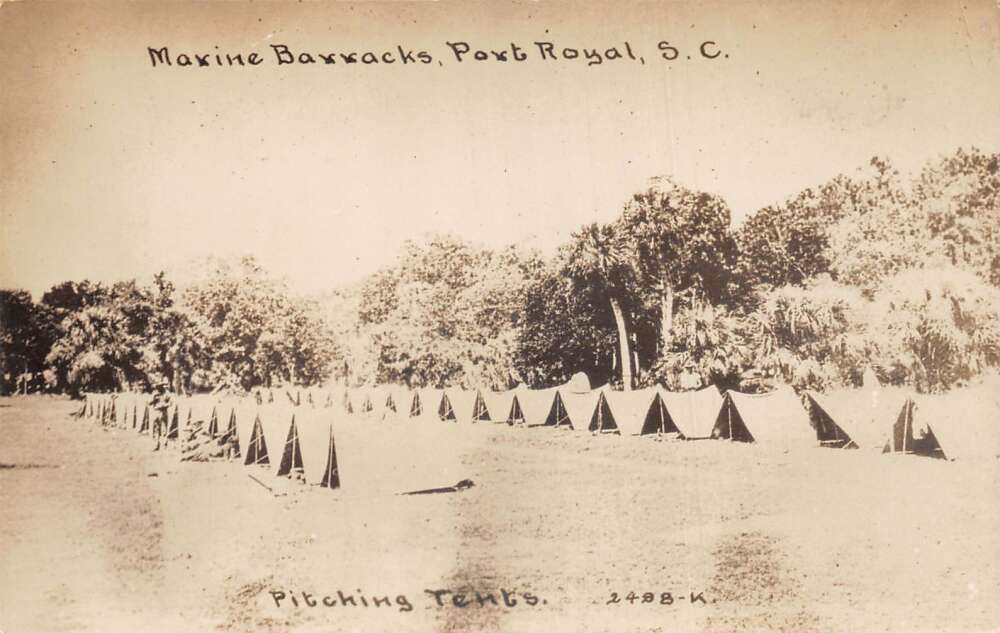 Marine Barracks, Port Royal, S. C.
Pitching Tents. 2498-K.